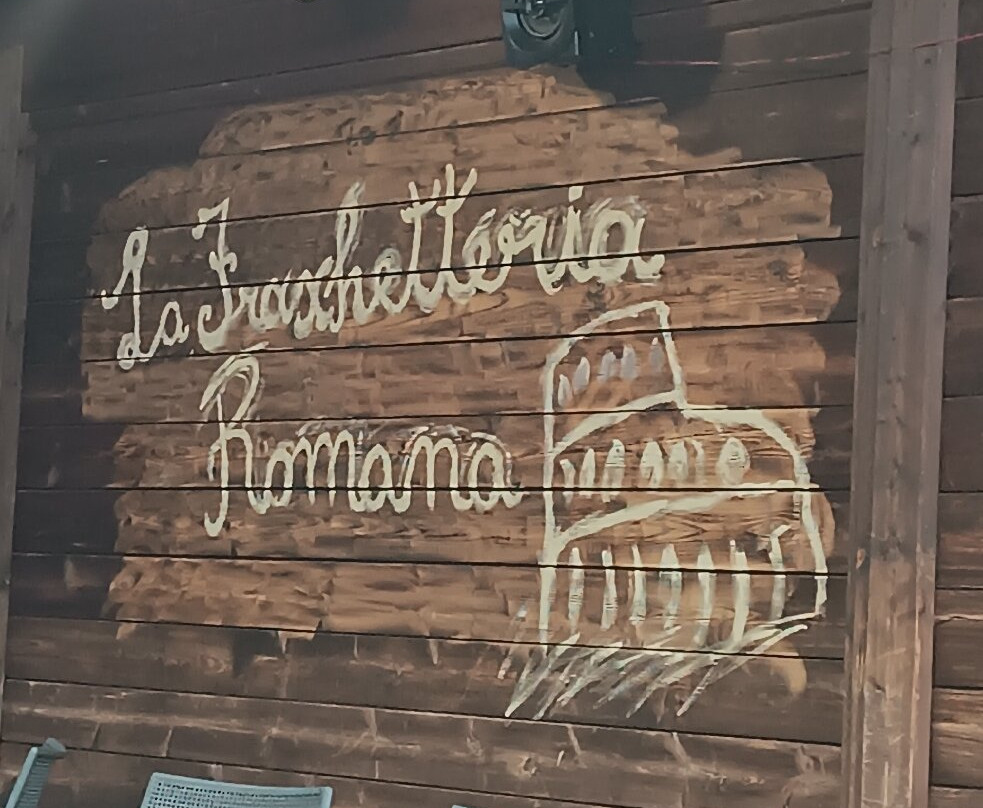 La Fraschetteria
Romana